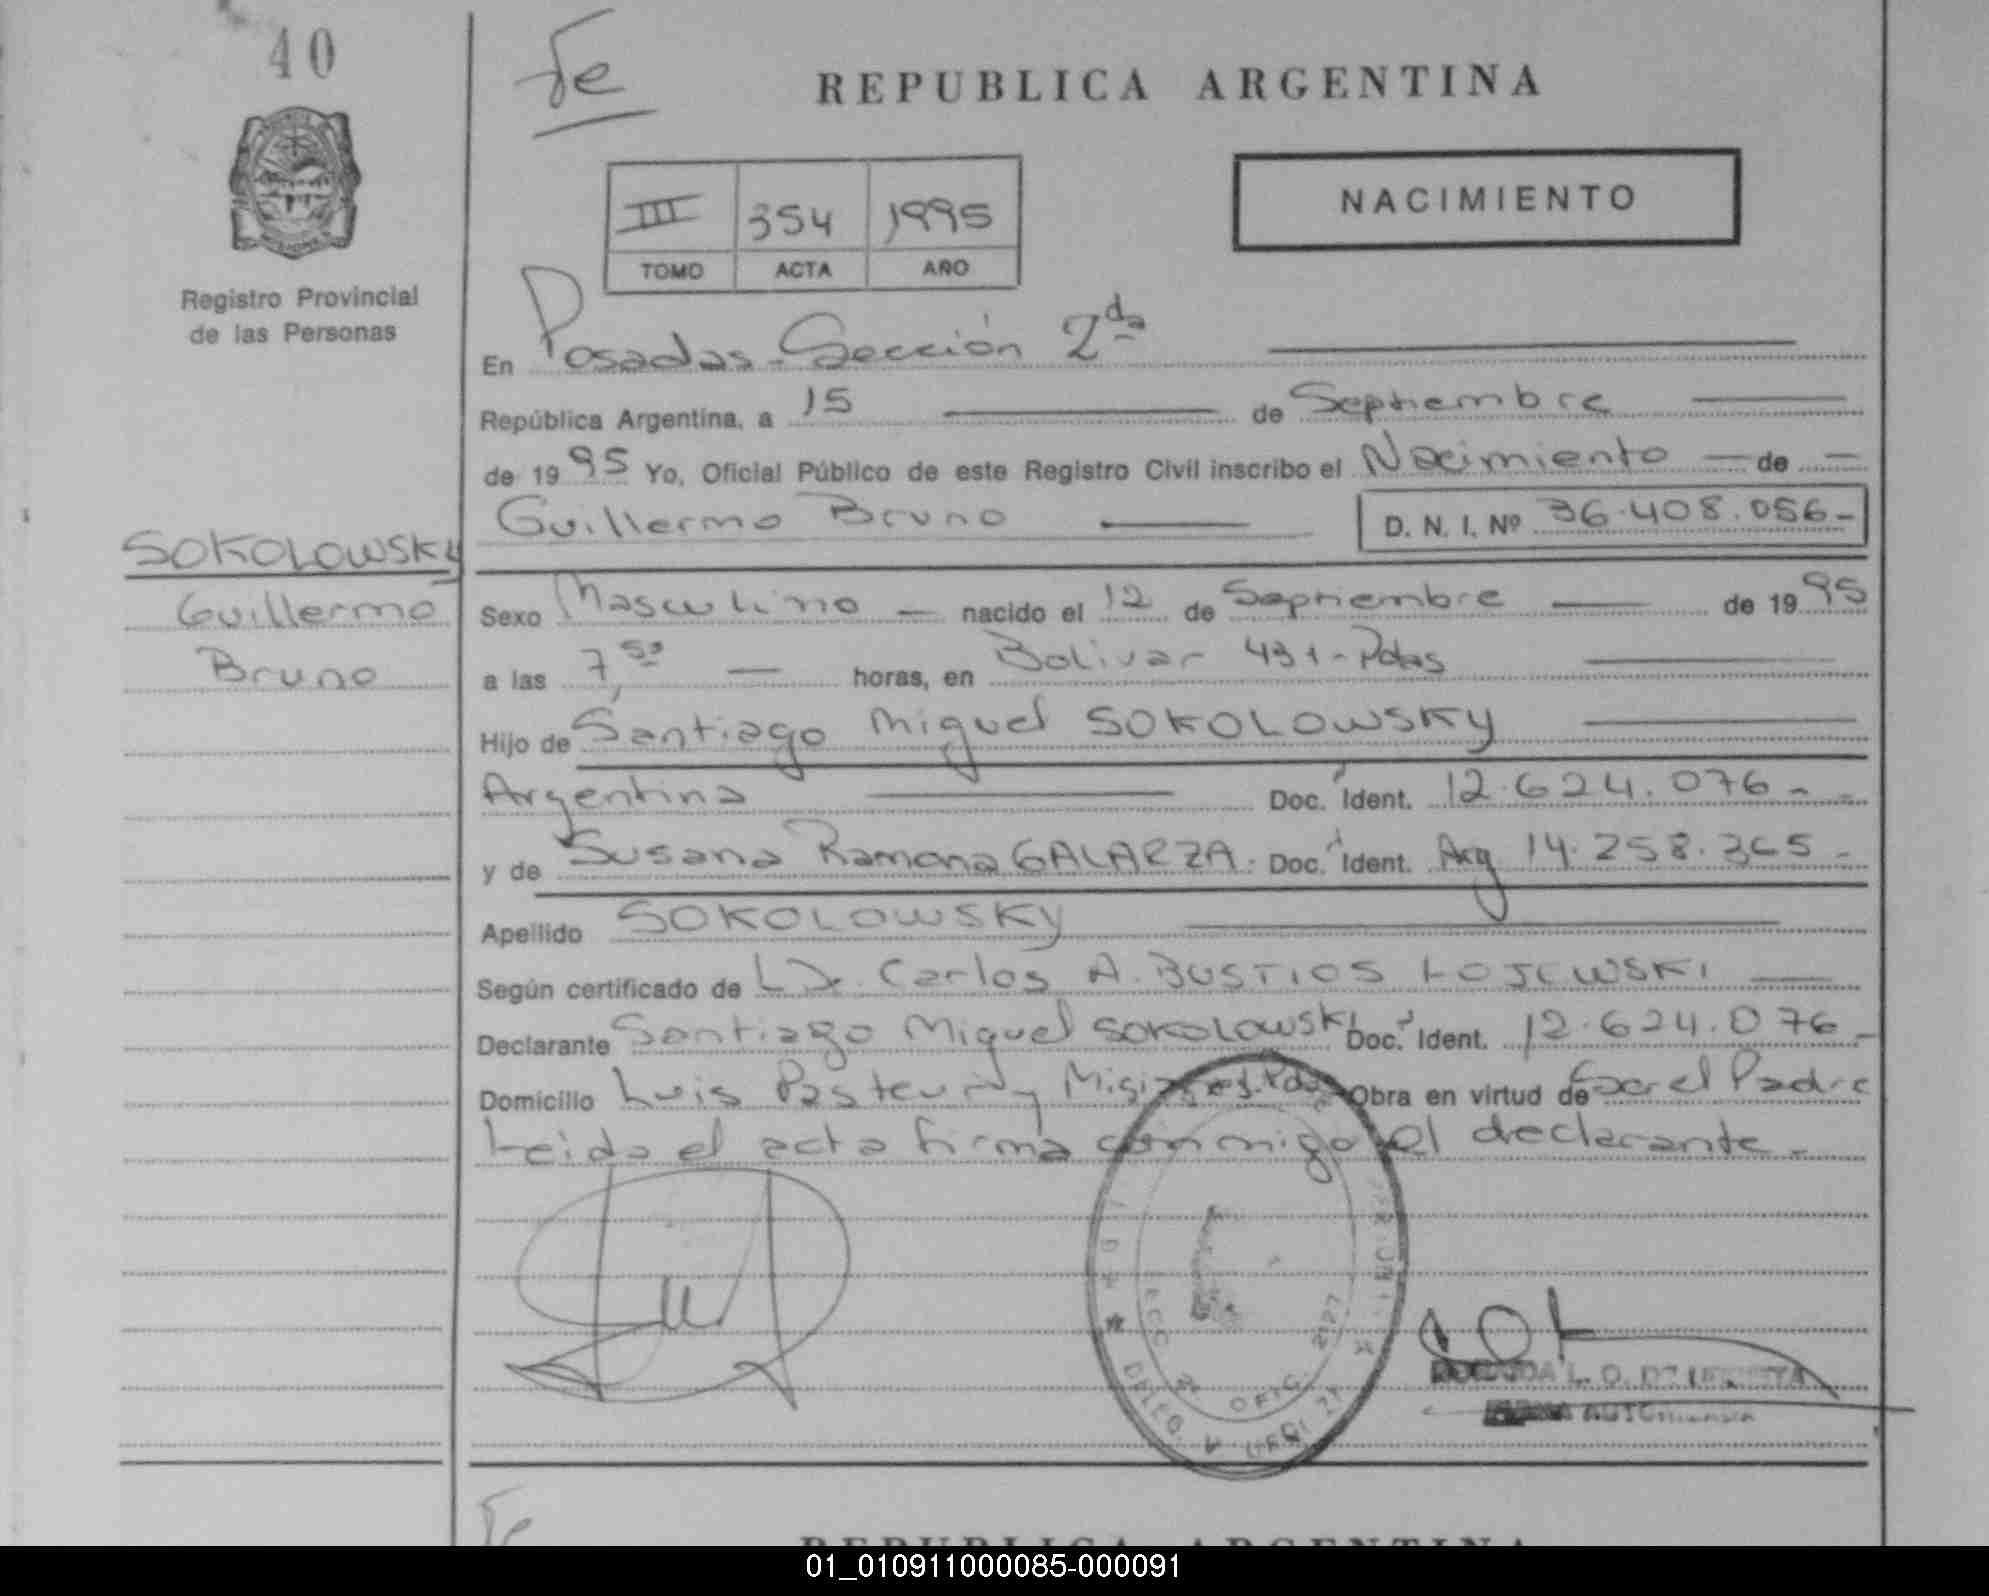 40
Fe
REPUBLICA ARGENTINA
III 354 1995
TOMO ACTA AÑO
NACIMIENTO
Registro Provincial
de las Personas
En Posadas - Sección 2da
República Argentina, a 15 de Septiembre
de 1995 Yo, Oficial Público de este Registro Civil inscribo el Nacimiento de
Guillermo Bruno D. N. I. Nº 36.408.056-
SOKOLOWSKY
Guillermo
Bruno
Sexo Masculino nacido el 12 de Septiembre de 1995
a las 7,50 horas, en Bolivar 431 - Pdas
Hijo de Santiago Miguel SOKOLOWSKY
Argentina Doc. Ident. 12.624.076 -
y de Susana Ramona GALARZA. Doc. Ident. Arg 14.258.365 -
Apellido SOKOLOWSKY
Según certificado de Carlos A. BUSTIOS LOJEWSKI
Declarante Santiago Miguel SOKOLOWSKI Doc. Ident. 12.624.076 -
Domicilio Luis Pasteur y Misiones. Pdas Obra en virtud de Ser el Padre
Leida el acta firma conmigo el declarante -
OFIC. 2127
DELEG.
FIRMA AUTORIZADA
Fe
REPUBLICA ARGENTINA
01_010911000085-000091